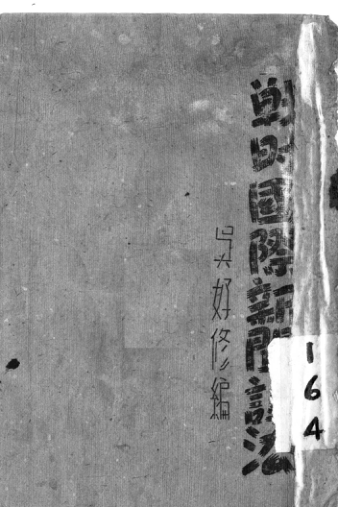 戰時國際新聞讀法
吳好修編
164